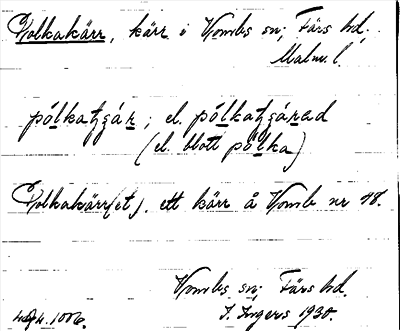 Polkakärr, kärr i Vombs sn; Färs hd.
Malm. l.
pólkatʒár; el. pólkatʒárad
(el. blott pólka)
Polkakärr(et). ett kärr å Vomb nr 48.
Vombs sn; Färs hd.
I. Ingers 1930.